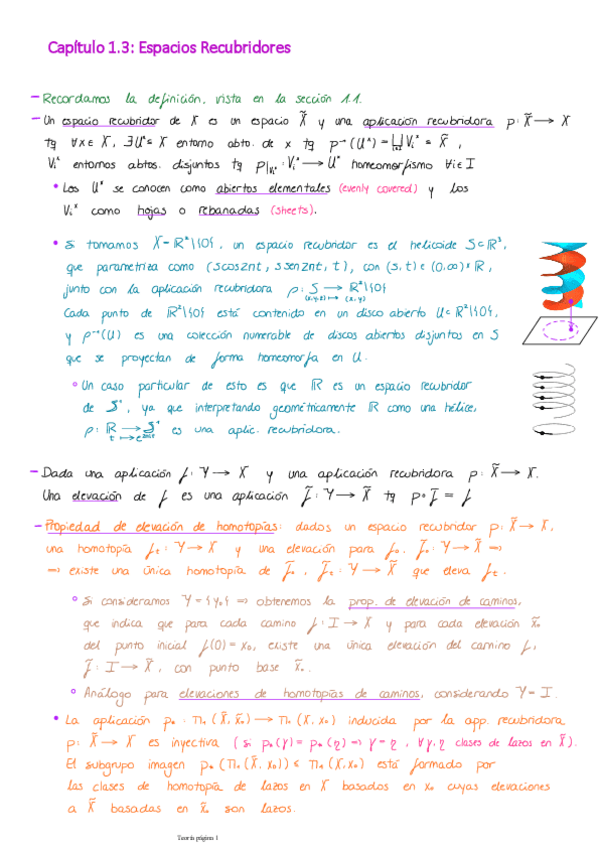 Capítulo 1.3: Espacios Recubridores
- Recordamos la definición, vista en la sección 1.1.
- Un espacio recubridor de X es un espacio X̃ y una aplicación recubridora p: X̃ → X
tq ∀x∈X, ∃Uˣ⊆X entorno abto. de x tq p⁻¹(Uˣ) = ⨆Vᵢˣ ⊆ X̃,
Vᵢˣ entornos abtos. disjuntos tq p|Vᵢˣ : Vᵢˣ → Uˣ homeomorfismo ∀i∈I
• Los Uˣ se conocen como abiertos elementales (evenly covered) y los
Vᵢˣ como hojas o rebanadas (sheets).
• Si tomamos X = ℝ²\{0}, un espacio recubridor es el helicoide S⊂ℝ³,
que parametriza como (s cos2πt, s sen2πt, t), con (s,t) ∈ (0,∞)×ℝ,
junto con la aplicación recubridora p: S → ℝ²\{0}
(x,y,z) ↦ (x,y)
Cada punto de ℝ²\{0} está contenido en un disco abierto U⊂ℝ²\{0},
y p⁻¹(U) es una colección numerable de discos abiertos disjuntos en S
que se proyectan de forma homeomorfa en U.
• Un caso particular de esto es que ℝ es un espacio recubridor
de S¹, ya que interpretando geométricamente ℝ como una hélice,
p: ℝ → S¹ es una aplic. recubridora.
t ↦ e^2πit
- Dada una aplicación f: Y → X y una aplicación recubridora p: X̃ → X.
Una elevación de f es una aplicación f̃: Y → X̃ tq p∘f̃ = f
- Propiedad de elevación de homotopías: dados un espacio recubridor p: X̃ → X,
una homotopía fₜ: Y → X y una elevación para f₀, f̃₀: Y → X̃ ⟹
⟹ existe una única homotopía de f̃₀, f̃ₜ: Y → X̃ que eleva fₜ.
• Si consideramos Y = {y₀} ⟹ obtenemos la prop. de elevación de caminos,
que indica que para cada camino f: I → X y para cada elevación x̃₀
del punto inicial f(0) = x₀, existe una única elevación del camino f,
f̃: I → X̃, con punto base x̃₀.
• Análogo para elevaciones de homotopías de caminos, considerando Y = I.
• La aplicación p₊ : π₁(X̃, x̃₀) → π₁(X, x₀) inducida por la app. recubridora
p: X̃ → X es inyectiva (si p₊(γ) = p₊(η) ⟹ γ = η, ∀γ,η clases de lazos en X̃).
El subgrupo imagen p₊(π₁(X̃, x₀)) ≤ π₁(X, x₀) está formado por
las clases de homotopía de lazos en X basados en x₀ cuyas elevaciones
a X̃ basadas en x̃₀ son lazos.
Teoría página 1